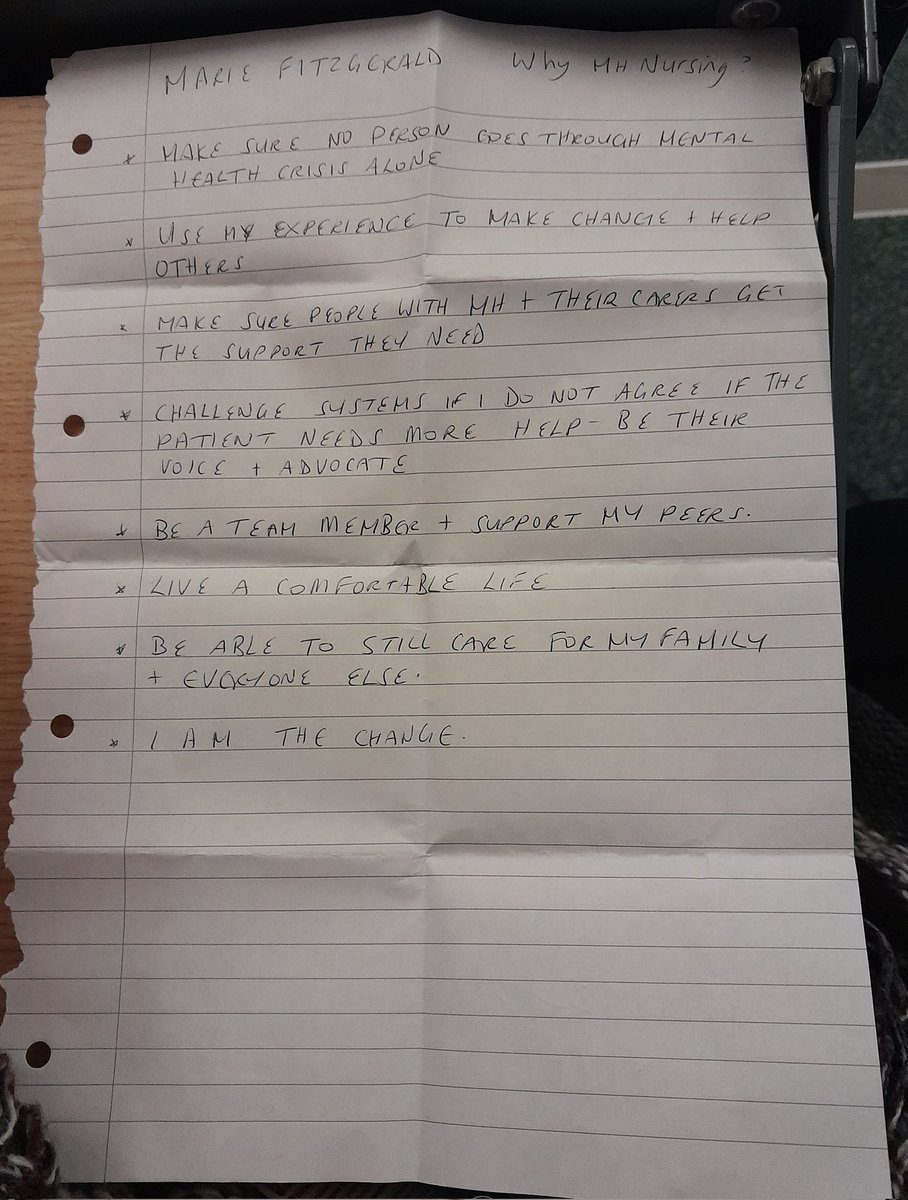 MARIE FITZGERALD Why MH Nursing?
* MAKE SURE NO PERSON GOES THROUGH MENTAL
HEALTH CRISIS ALONE
* USE MY EXPERIENCE TO MAKE CHANGE + HELP
OTHERS
* MAKE SURE PEOPLE WITH MH + THEIR CARERS GET
THE SUPPORT THEY NEED
* CHALLENGE SYSTEMS IF I DO NOT AGREE IF THE
PATIENT NEEDS MORE HELP - BE THEIR
VOICE + ADVOCATE
* BE A TEAM MEMBER + SUPPORT MY PEERS.
* LIVE A COMFORTABLE LIFE
* BE ABLE TO STILL CARE FOR MY FAMILY
+ EVERYONE ELSE.
* I AM THE CHANGE.